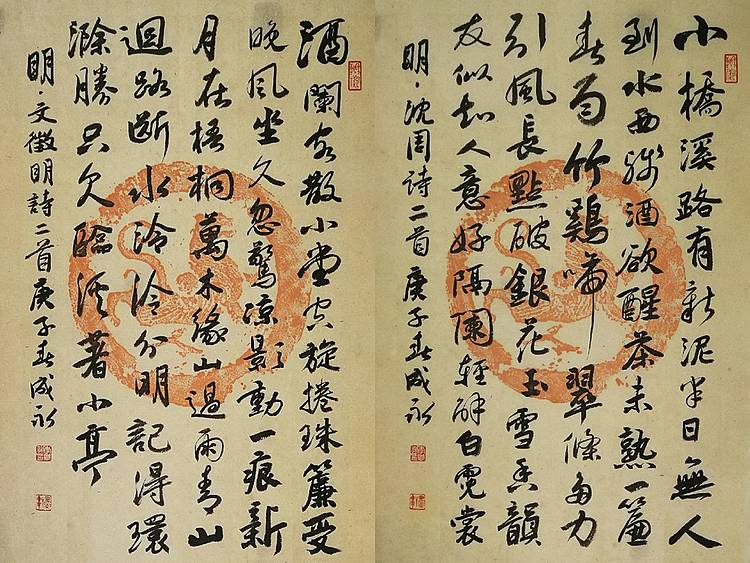 小橋溪路有新泥半日無人
到水西殘酒欲醒茶未熟一簾
春雨竹鷄啼翠條多力
引風長點破銀花玉雪香韻
友似知人意好隔闌輕解白霓裳
明·沈周詩二首庚子春成永
酒闌客散小堂空旋捲珠簾受
晚風坐久忽驚涼影動一痕新
月在梧桐萬木緣山過雨青山
迴路斷水泠泠分明記得環
滁勝只欠臨溪著小亭
明·文徵明詩二首庚子春成永